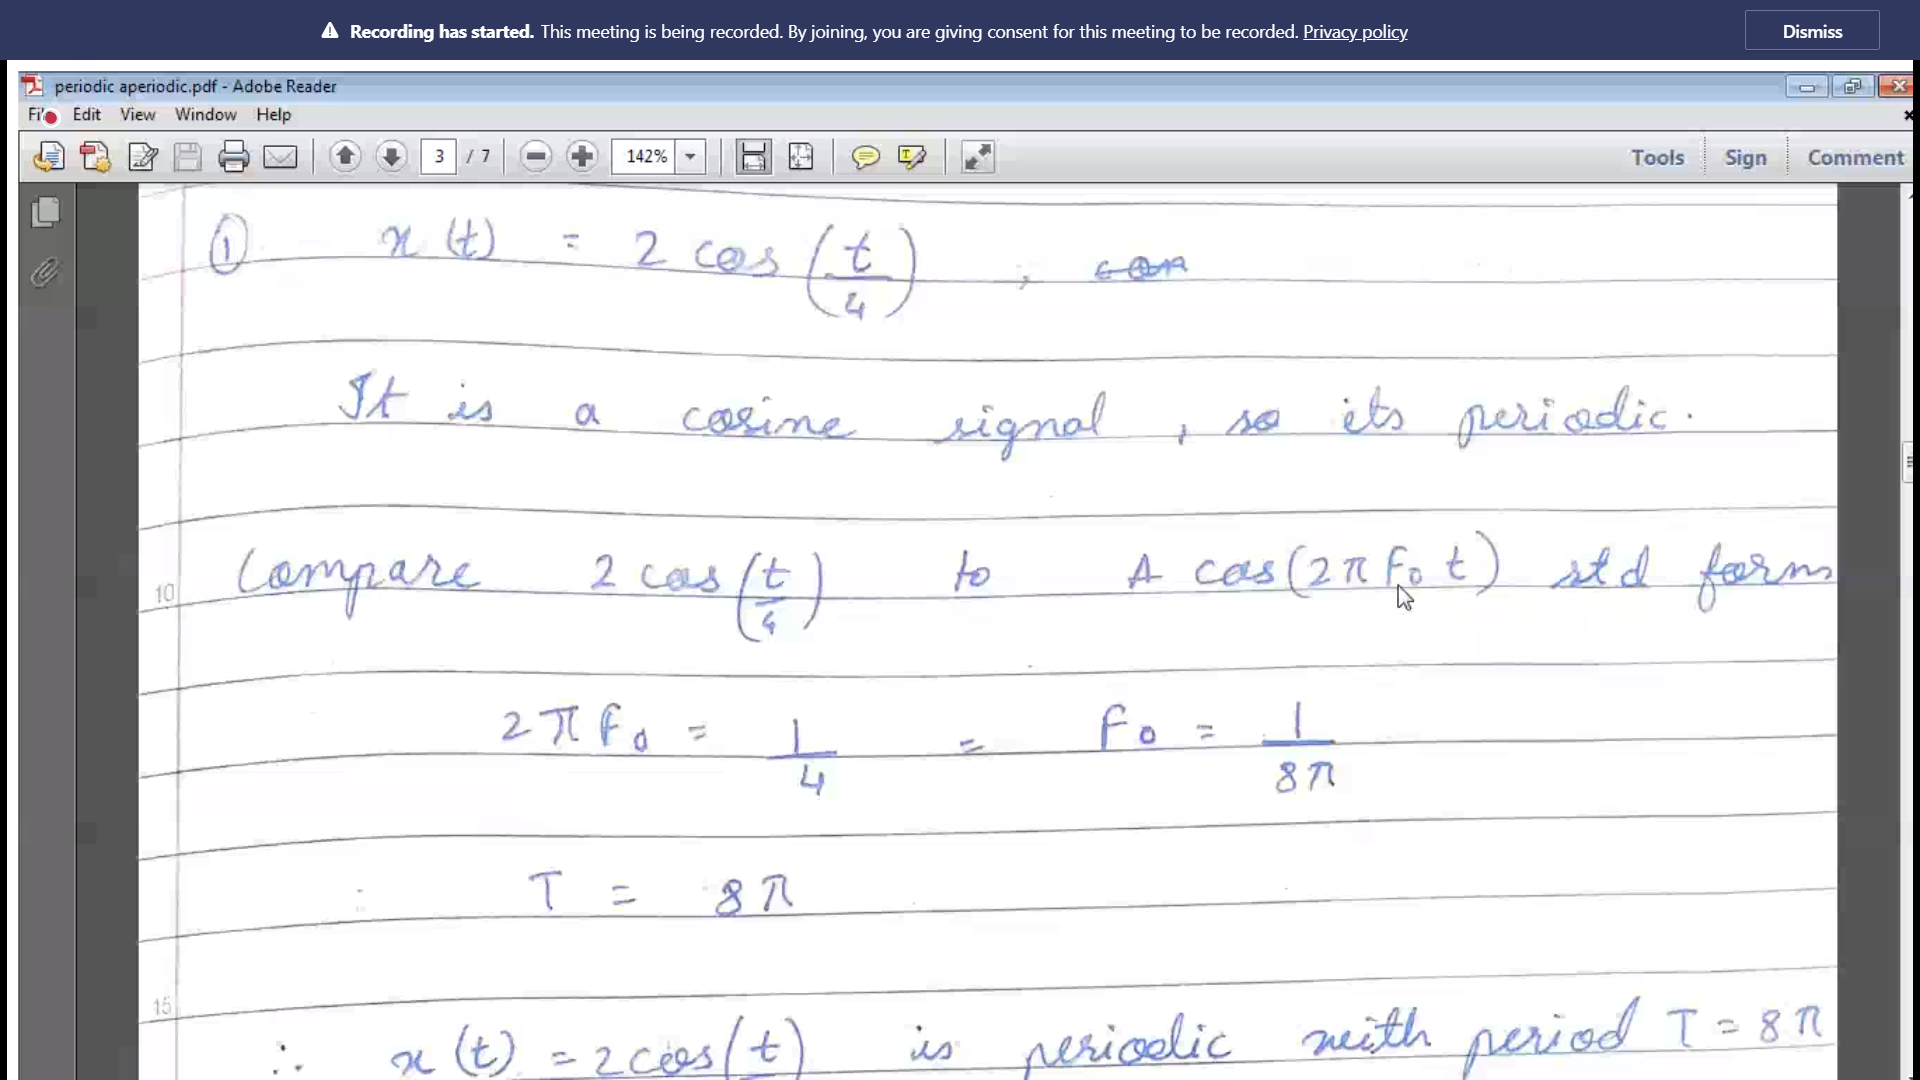 Recording has started. This meeting is being recorded. By joining, you are giving consent for this meeting to be recorded. Privacy policy
Dismiss
periodic aperiodic.pdf - Adobe Reader
File Edit View Window Help
3 / 7 142% Tools Sign Comment
① x(t) = 2 cos(t/4) ,
It is a cosine signal, so its periodic.
10 Compare 2 cos(t/4) to A cos(2π F₀ t) std form
2π F₀ = 1/4 = F₀ = 1/8π
T = 8π
15
∴ x(t) = 2 cos(t/ ) is periodic with period T = 8π